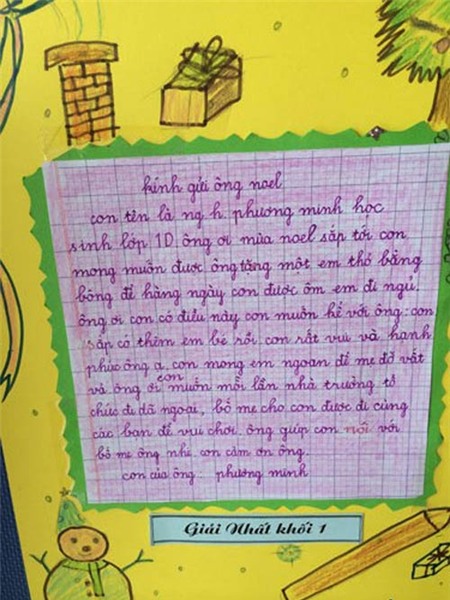 kính gửi ông noel
con tên là ng. h. phương minh học
sinh lớp 1D. ông ơi mùa noel sắp tới con
mong muốn được ông tặng một em thỏ bằng
bông để hàng ngày con được ôm em đi ngủ.
ông ơi con có điều này con muốn kể với ông: con
sắp có thêm em bé rồi. con rất vui và hạnh
phúc ông ạ. con mong em ngoan để mẹ đỡ vất
và ông ơi con muốn mỗi lần nhà trường tổ
chức đi dã ngoại, bố mẹ cho con được đi cùng
các bạn để vui chơi. ông giúp con nói với
bố mẹ ông nhé. con cảm ơn ông.
con của ông.. phương minh
Giải Nhất khối 1